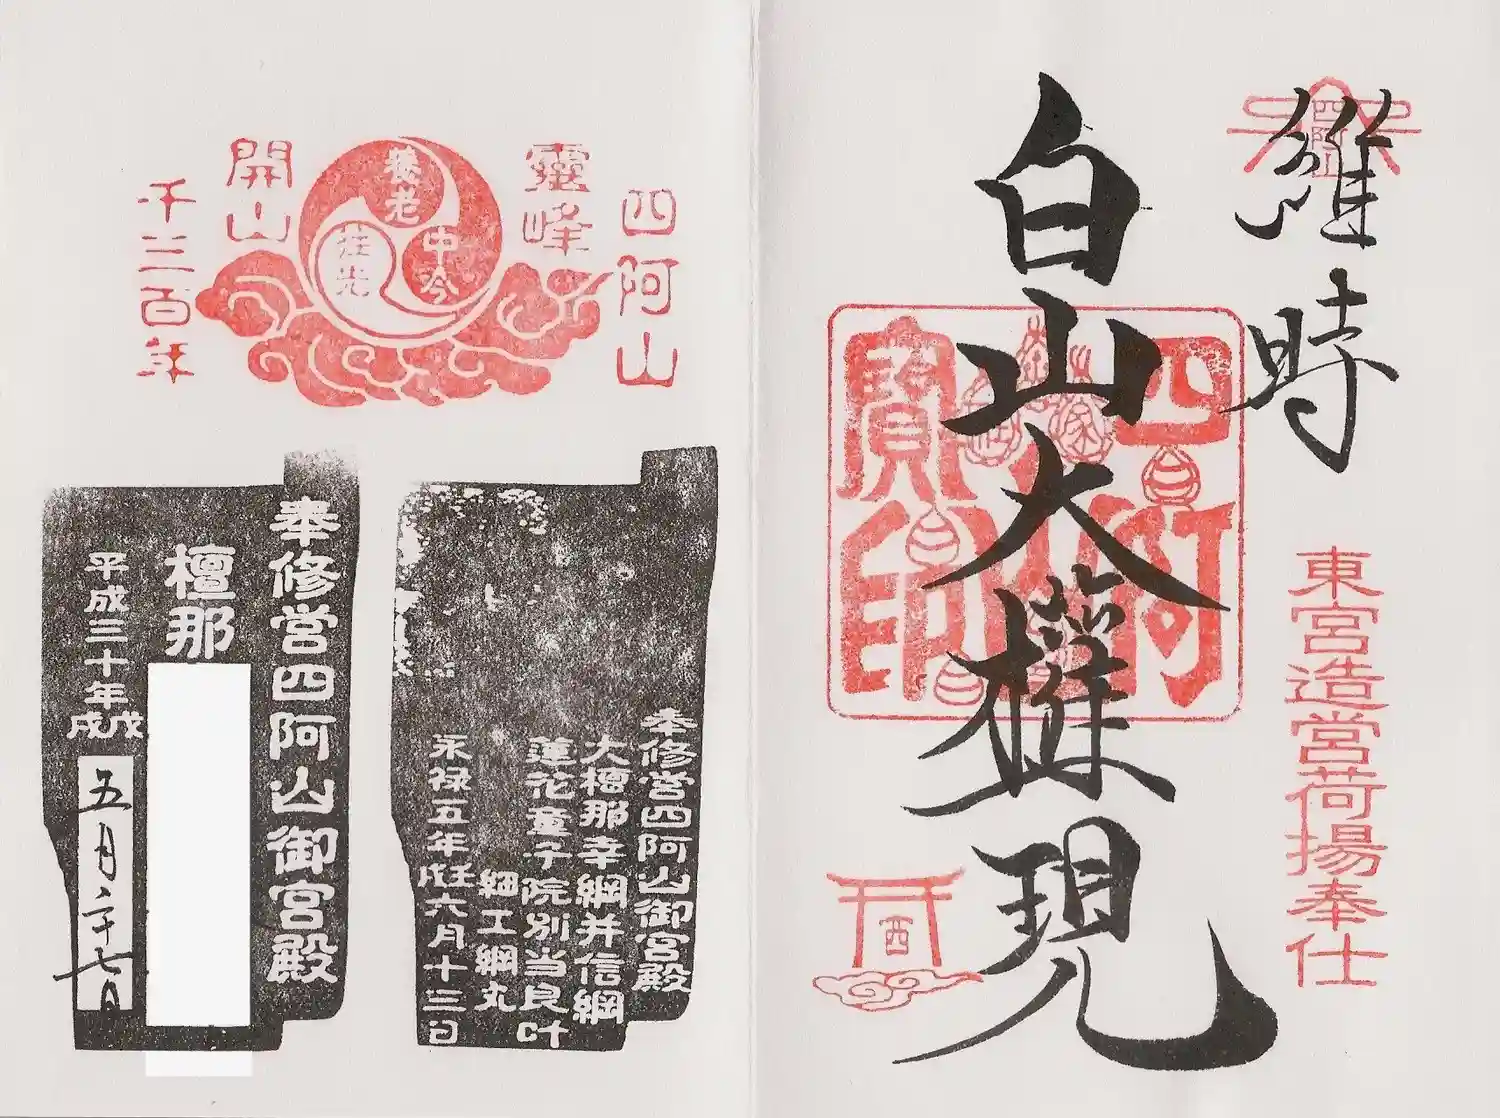 維時
白山大權現
四阿山寶印
東宮造営荷揚奉仕
西
四阿山
靈峰
養老
中今
荘光
開山
千三百年
奉修営四阿山御宮殿
大檀那幸綱并信綱
蓮花童子院別当良叶
細工綱丸
永禄五年
六月十三日
奉修営四阿山御宮殿
檀那
平成三十年戊戌
五月二十七日